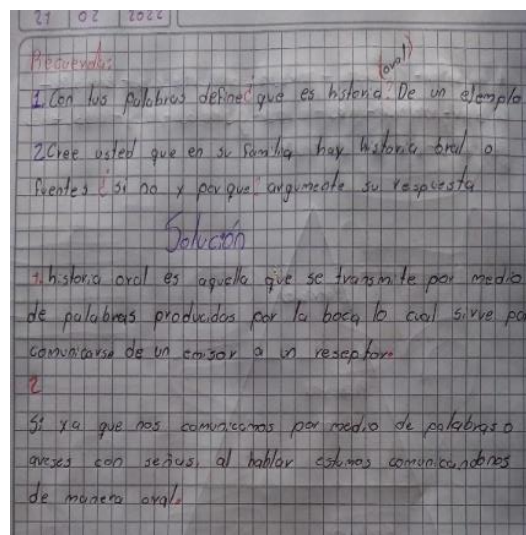 21 02 2022
Recuerda:
(oral)
1. Con tus palabras define ¿que es historia? De un ejemplo
2. Cree usted que en su familia hay historia oral o
fuentes ¿si no y por que? argumente su respuesta
Solución
1. historia oral es aquella que se transmite por medio
de palabras producidas por la boca lo cual sirve pa
comunicarse de un emisor a un receptor.
2
Si ya que nos comunicamos por medio de palabras o
aveses con señas, al hablar estamos comunicandonos
de manera oral.